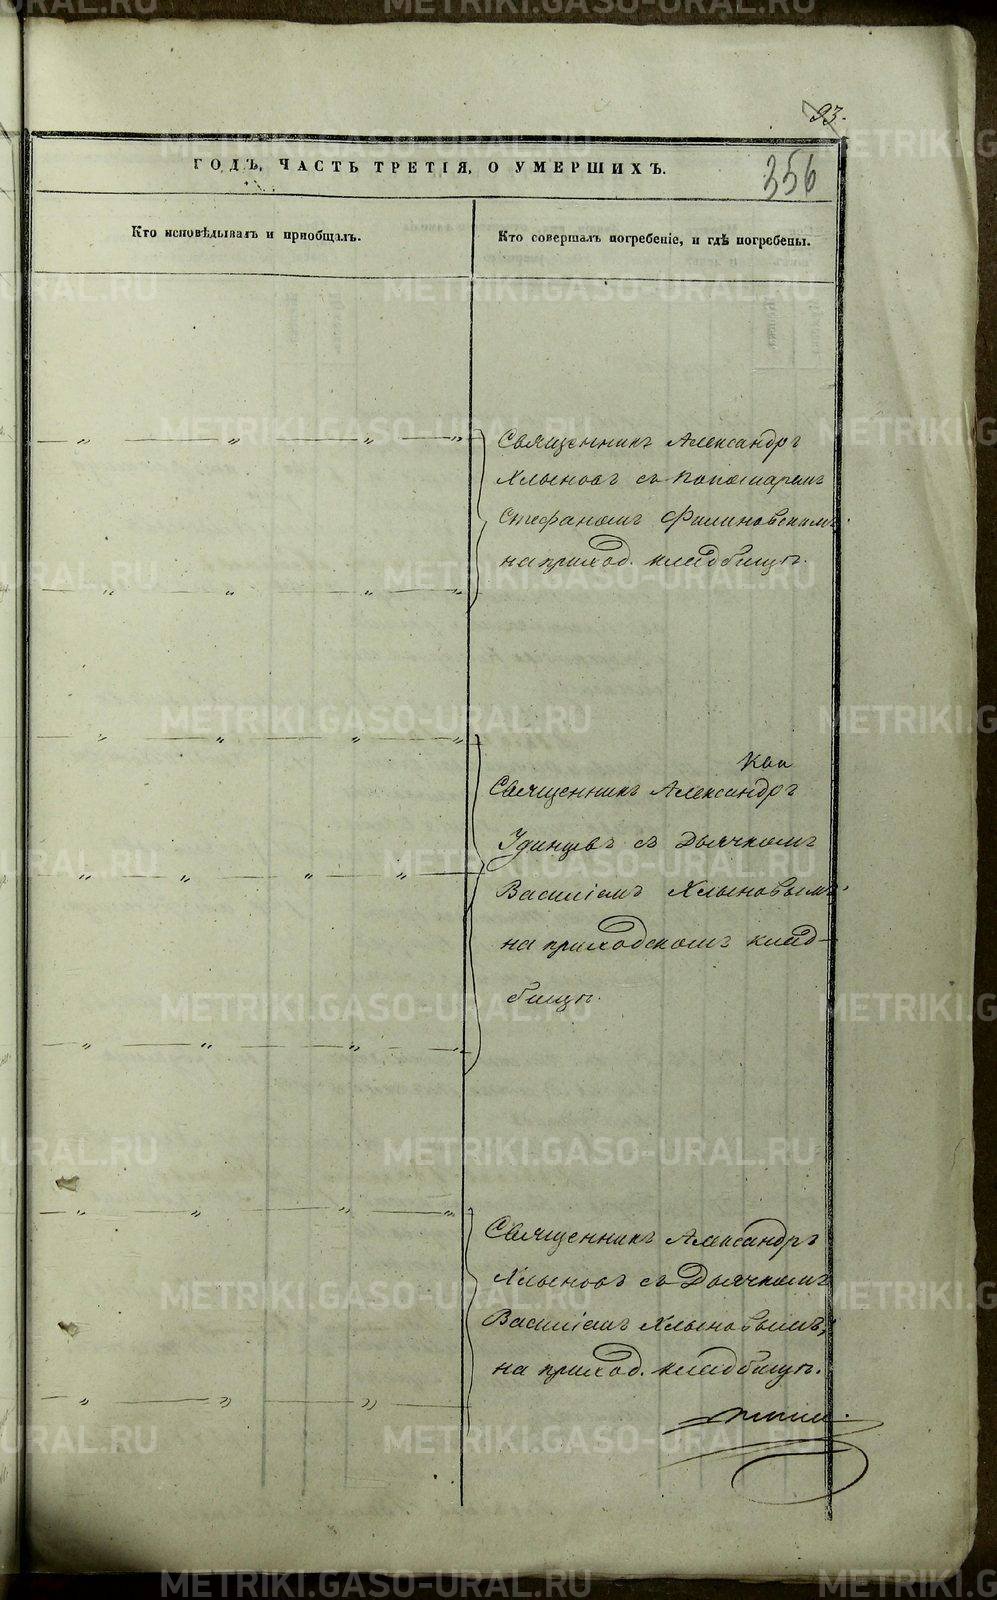 93.
356
ГОДЪ, ЧАСТЬ ТРЕТІЯ, О УМЕРШИХЪ.
Кто исповѣдывалъ и пріобщалъ.
Кто совершалъ погребеніе, и гдѣ погребены.
Священникъ Александръ
Хлыновъ съ Пономаремъ
Стефаномъ Филиновскимъ
на приход. кладбищѣ.
Священникъ Александръ
Удинцевъ съ Дьячкомъ
Василіемъ Хлыновымъ,
на приходскомъ клад-
бищѣ.
Священникъ Александръ
Хлыновъ съ Дьячкомъ
Василіемъ Хлыновымъ,
на приход. кладбищѣ.
METRIKI.GASO-URAL.RU